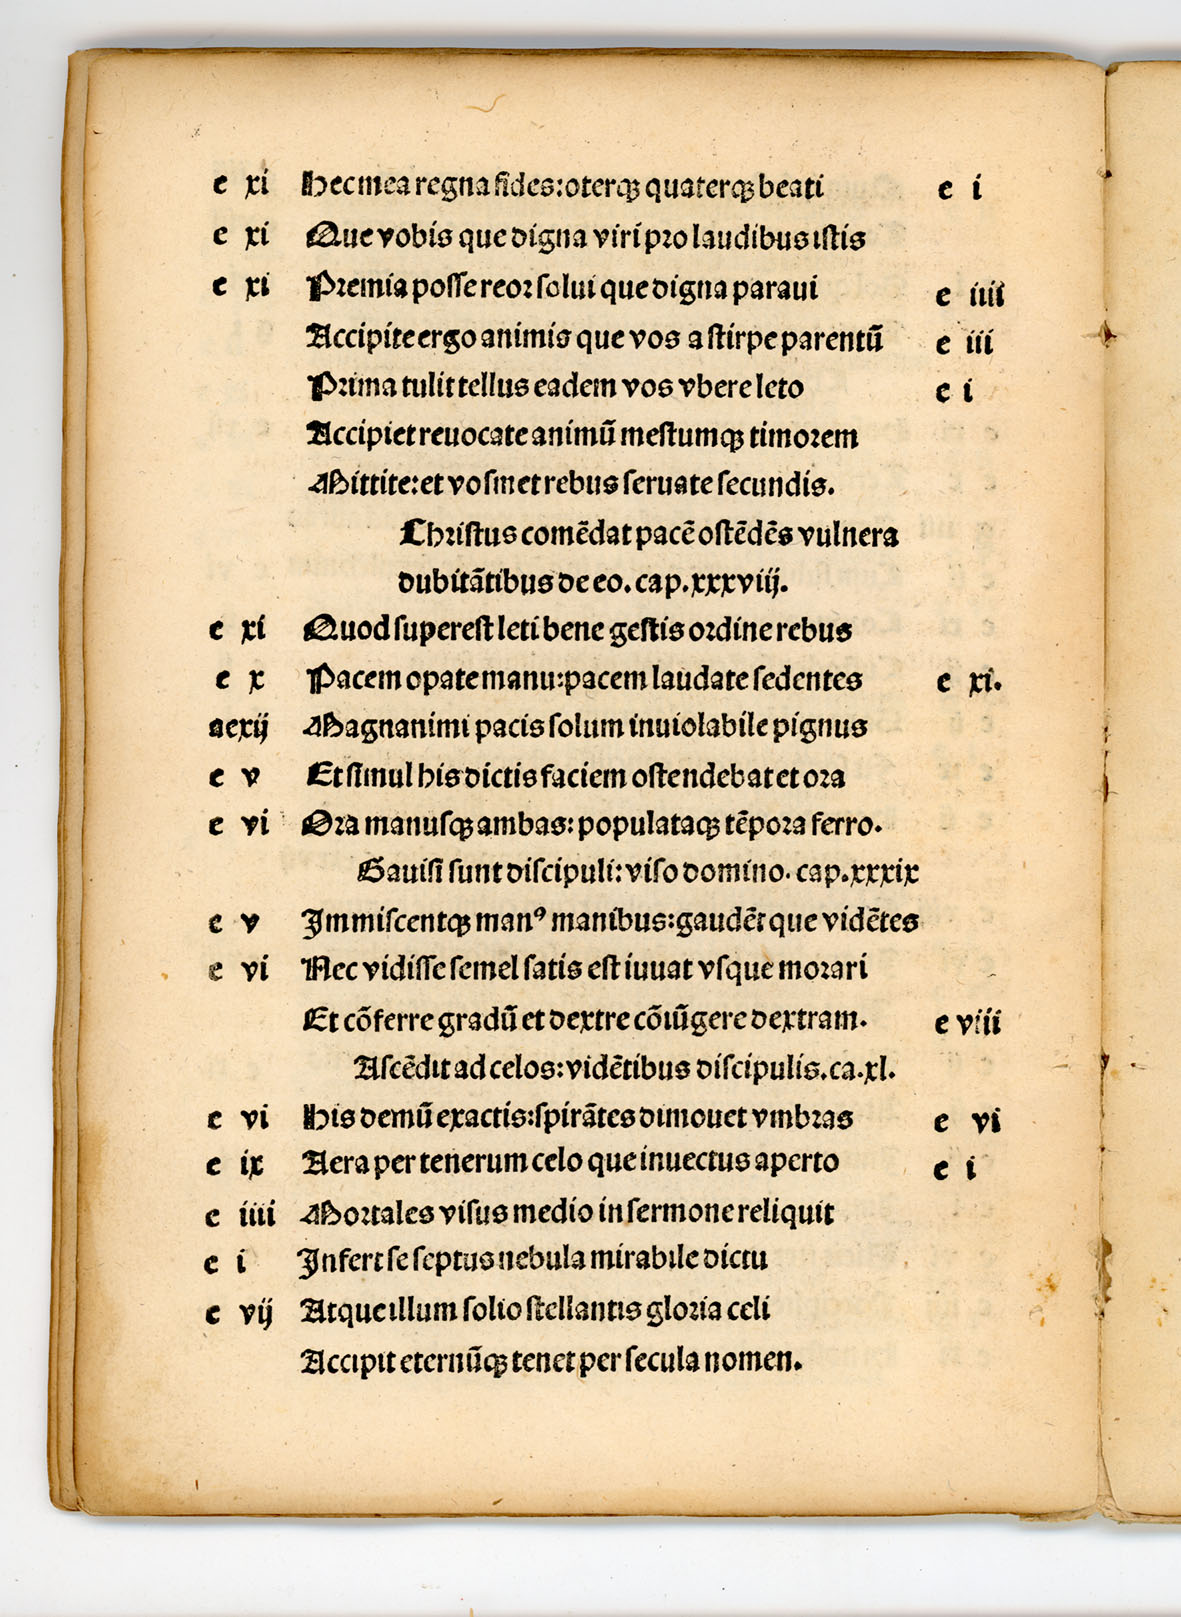 e xi Hec mea regna fides: o terqꝫ quaterqꝫ beati e i
e xi Que vobis que digna viri pro laudibus istis
e xi Premia posse reor solui que digna paraui e iiii
Accipite ergo animis que vos a stirpe parentū e iii
Prima tulit tellus eadem vos vbere leto e i
Accipiet reuocate animū mestumqꝫ timorem
Mittite: et vosmet rebus seruate secundis.
Christus comēdat pacē ostēdēs vulnera
dubitātibus de eo. cap. xxxviij.
e xi Quod superest leti bene gestis ordine rebus
e x Pacem opate manu: pacem laudate sedentes e xi.
aexij Magnanimi pacis solum inuiolabile pignus
e v Et simul his dictis faciem ostendebat et ora
e vi Ora manusqꝫ ambas: populataqꝫ tēpora ferro.
Gauisi sunt discipuli: viso domino. cap. xxxix
e v Immiscentqꝫ manꝰ manibus: gaudēt que vidētes
e vi Nec vidisse semel satis est iuuat vsque morari
Et cōferre gradū et dextre cōiūgere dextram. e viii
Ascēdit ad celos: vidētibus discipulis. ca. xl.
e vi His demū exactis: spirātes dimouet vmbras e vi
e ix Aera per tenerum celo que inuectus aperto e i
e iiii Mortales visus medio in sermone reliquit
e i Infert se septus nebula mirabile dictu
e vij Atque illum solio stellantis gloria celi
Accipit eternūqꝫ tenet per secula nomen.